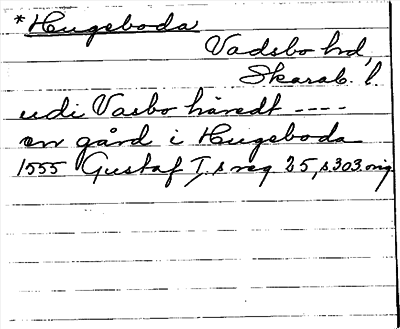 *Hugeboda
Vadsbo hd,
Skarab. l.
udi Vasbo häredt ----
en gård i Hugeboda
1555 Gustaf I,s reg 25, s 303. orig